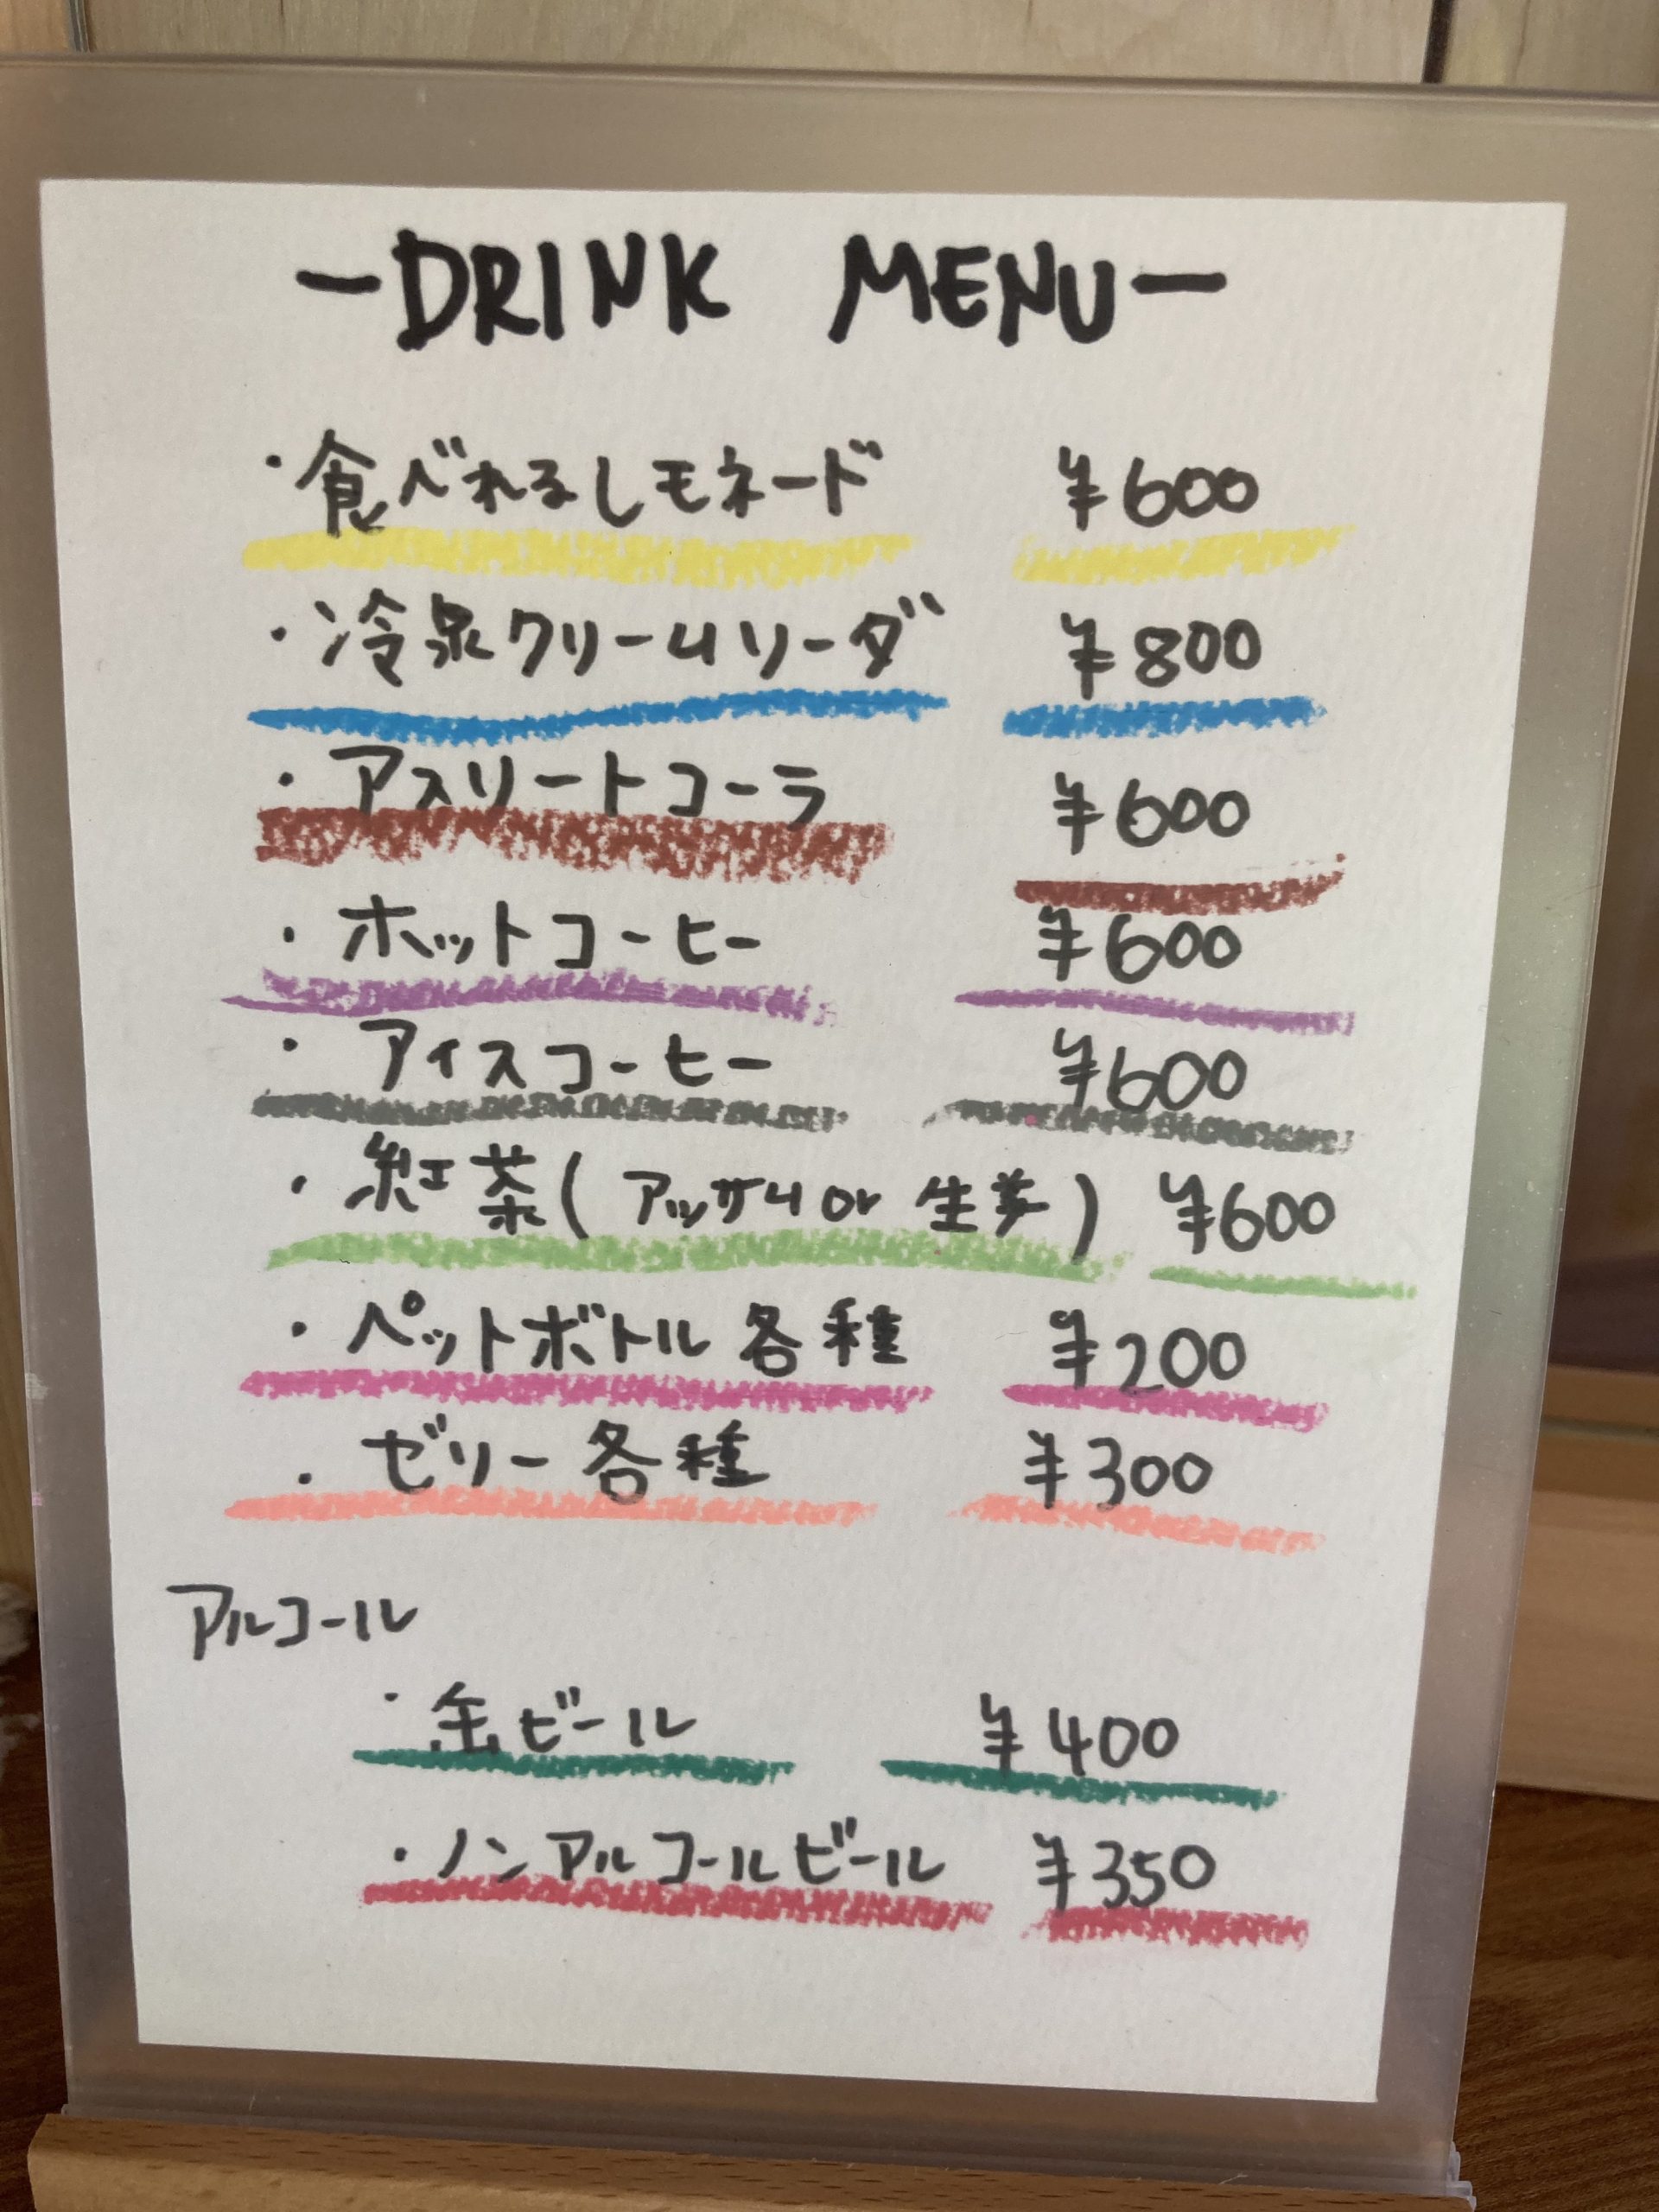 -DRINK MENU-
・食べれるレモネード ¥600
・冷泉クリームソーダ ¥800
・アスリートコーラ ¥600
・ホットコーヒー ¥600
・アイスコーヒー ¥600
・紅茶(アッサムor生姜) ¥600
・ペットボトル各種 ¥200
・ゼリー各種 ¥300
アルコール
・缶ビール ¥400
・ノンアルコールビール ¥350